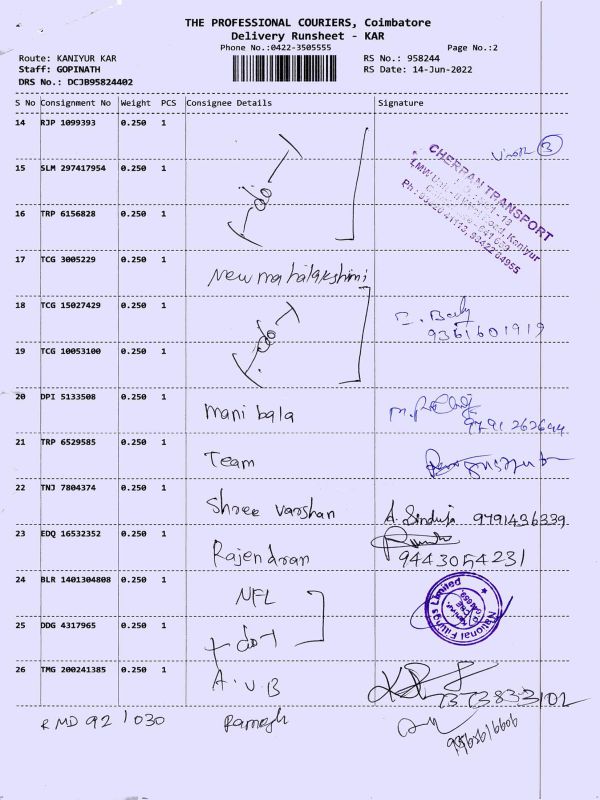 THE PROFESSIONAL COURIERS, Coimbatore
Delivery Runsheet - KAR
Phone No.:0422-3505555
Page No.:2
Route: KANIYUR KAR
RS No.: 958244
Staff: GOPINATH
RS Date: 14-Jun-2022
DRS No.: DCJB95824402
S No Consignment No Weight PCS Consignee Details Signature
14 RJP 1099393 0.250 1
3
15 SLM 297417954 0.250 1
CHERRAN TRANSPORT
16 TRP 6156828 0.250 1
17 TCG 3005229 0.250 1 New mahalakshimi
18 TCG 15027429 0.250 1
9361601919
19 TCG 10053100 0.250 1
20 DPI 5133508 0.250 1 Mani bala
21 TRP 6529585 0.250 1 Team
22 TNJ 7804374 0.250 1 Shree varshan A. Sinduja 9791436339
23 EDQ 16532352 0.250 1 Rajendran
9443054231
24 BLR 1401304808 0.250 1 NFL
National Fittings Limited
25 DDG 4317965 0.250 1
26 TMG 200241385 0.250 1 A.V.B
7373833102
RMD 921030 Ramesh